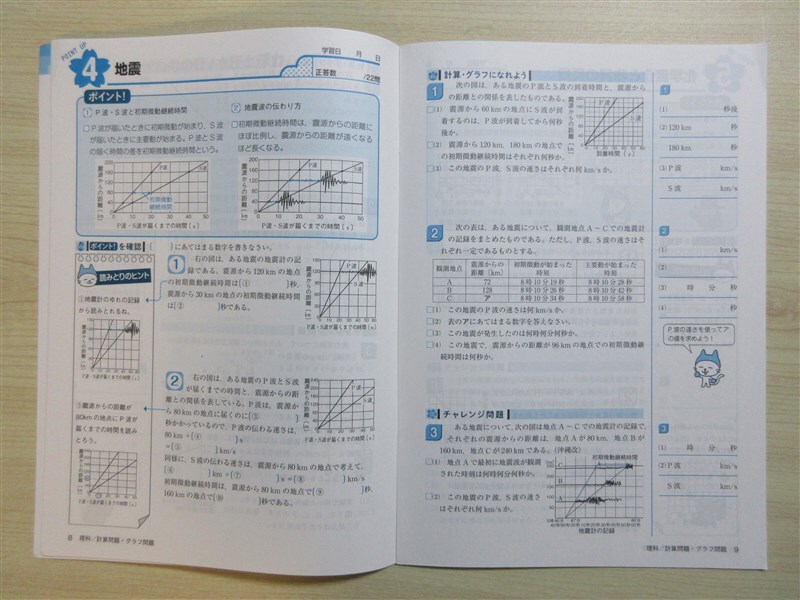 POINT UP
4 地震
学習日 月 日
正答数 /22問
ポイント!
① P波・S波と初期微動継続時間
□P波が届いたときに初期微動が始まり、S波
が届いたときに主要動が始まる。P波とS波
の届く時間の差を初期微動継続時間という。
震源からの距離
P波
S波
初期微動
継続時間
P波・S波が届くまでの時間〔s〕
② 地震波の伝わり方
□初期微動継続時間は、震源からの距離に
ほぼ比例し、震源からの距離が遠くなる
ほど長くなる。
震源からの距離
P波
S波
P波・S波が届くまでの時間〔s〕
ポイント!を確認
[ ]にあてはまる数字を書きなさい。
読みとりのヒント
①地震計のゆれの記録
から読みとれるね。
P波・S波が届くまでの時間〔s〕
②震源からの距離が
80kmの地点にP波が
届くまでの時間を読み
とろう。
P波・S波が届くまでの時間〔s〕
1 右の図は、ある地震の地震計の記
録である。震源から120kmの地点
の初期微動継続時間は(① )秒、
震源から30kmの地点の初期微動継続時間
は(② )秒である。
P波・S波が届くまでの時間〔s〕
2 右の図は、ある地震のP波とS波
が届くまでの時間と、震源からの距
離との関係を表している。P波は、震源か
ら80kmの地点に届くのに(③ )
秒かかっているので、P波の伝わる速さは、
80km÷(④ )s
=(⑤ )km/s
同様に、S波の伝わる速さは、震源から80kmの地点で考えて、
(⑥ )km÷(⑦ )s=(⑧ )km/s
初期微動継続時間は、震源から80kmの地点で(⑨ )秒、
160kmの地点で(⑩ )秒である。
P波・S波が届くまでの時間〔s〕
8 理科/計算問題・グラフ問題
計算・グラフになれよう
1 次の図は、ある地震のP波とS波の到着時間と、震源から
の距離との関係を表したものである。
□(1) 震源から60kmの地点にS波が到
着するのは、P波が到着してから何秒
後か。
□(2) 震源から120km、180kmの地点で
の初期微動継続時間はそれぞれ何秒か。
□(3) この地震のP波、S波の速さはそれぞれ何km/sか。
到着時間〔s〕
2 次の表は、ある地震について、観測地点A~Cでの地震計
の記録をまとめたものである。ただし、P波、S波の速さはそ
れぞれ一定であるものとする。
観測地点 震源からの距離〔km〕 初期微動が始まった時刻 主要動が始まった時刻
A 72 8時10分19秒 8時10分28秒
B 128 8時10分26秒 8時10分42秒
C ア 8時10分34秒 8時10分58秒
□(1) この地震のP波の速さは何km/sか。
□(2) 表のアにあてはまる数字を答えなさい。
□(3) この地震が発生したのは何時何分何秒か。
□(4) この地震で、震源からの距離が96kmの地点での初期微動
継続時間は何秒か。
チャレンジ問題
3 ある地震について、次の図は地点A~Cでの地震計の記録で、
それぞれの震源からの距離は、地点Aが80km、地点Bが
160km、地点Cが240kmである。(沖縄改)
□(1) 地点Aで最初に地震波が観測
された時刻は何時何分何秒か。
□(2) この地震のP波、S波の速さ
はそれぞれ何km/sか。
C
B
A
地震計の記録
1
(1) 秒後
(2) 120km 秒
180km 秒
(3) P波 km/s
S波 km/s
2
(1) km/s
(2)
(3) 時 分 秒
(4) 秒
P波の速さを使ってアの
値を求めよう!
3
(1) 時 分 秒
(2) P波 km/s
S波 km/s
理科/計算問題・グラフ問題 9